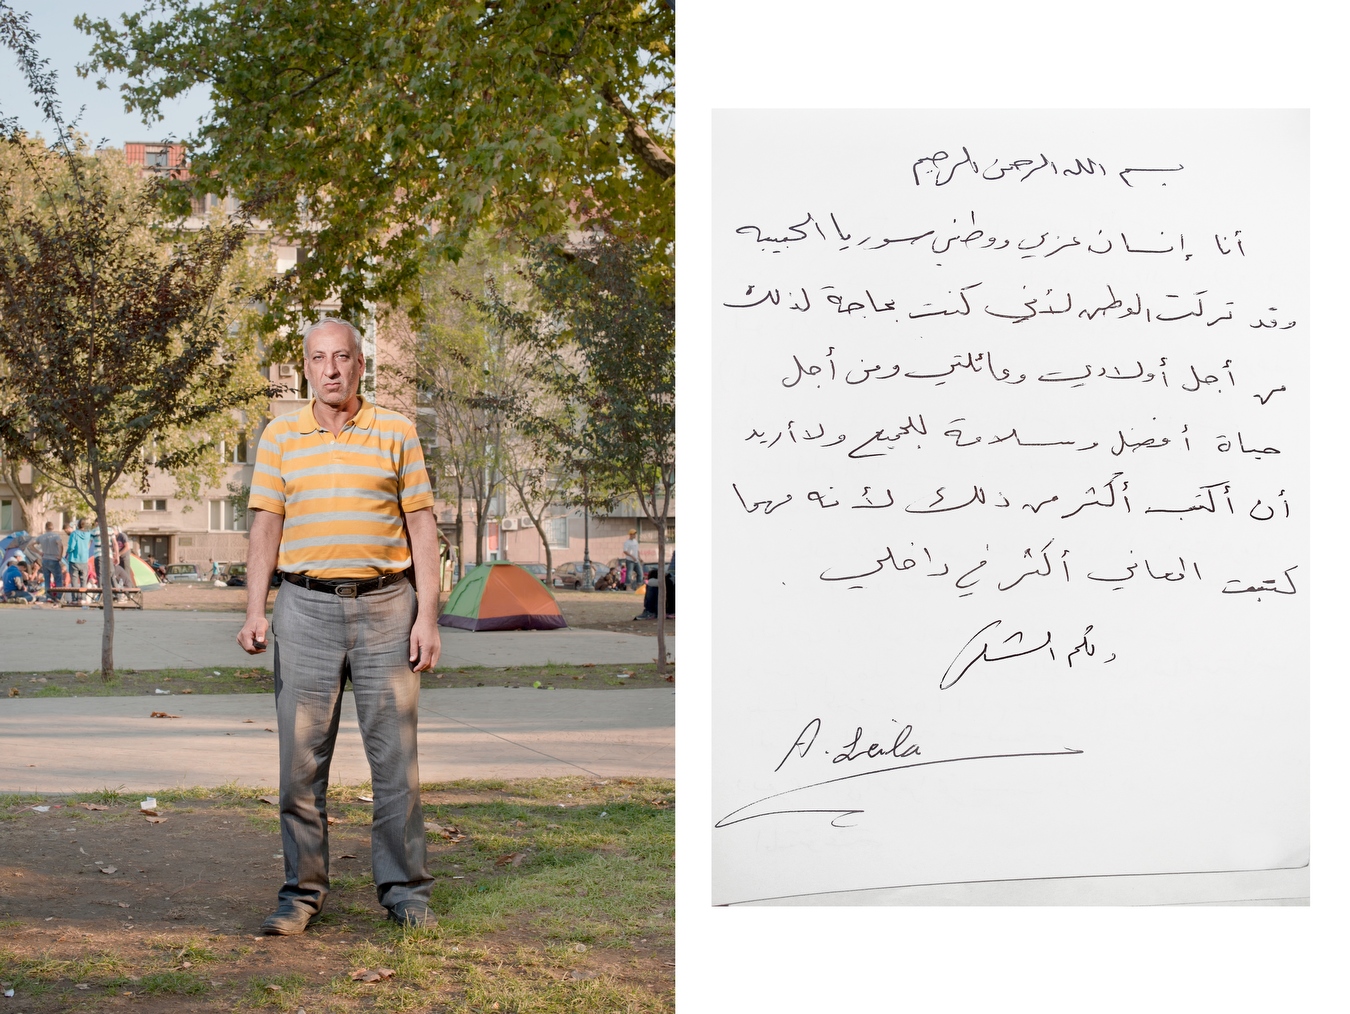 بسم الله الرحمن الرحيم
أنا إنسان عربي ووطني سوريا الحبيبه
وقد تركت الوطن لأني كنت بحاجة لذلك
من أجل أولادي وعائلتي ومن أجل
حياة أفضل وسلامة للجميع ولا أريد
أن أكتب أكثر من ذلك لأنه مهما
كتبت المعاني أكثر في داخلي
ولكم الشكر
A. Leila